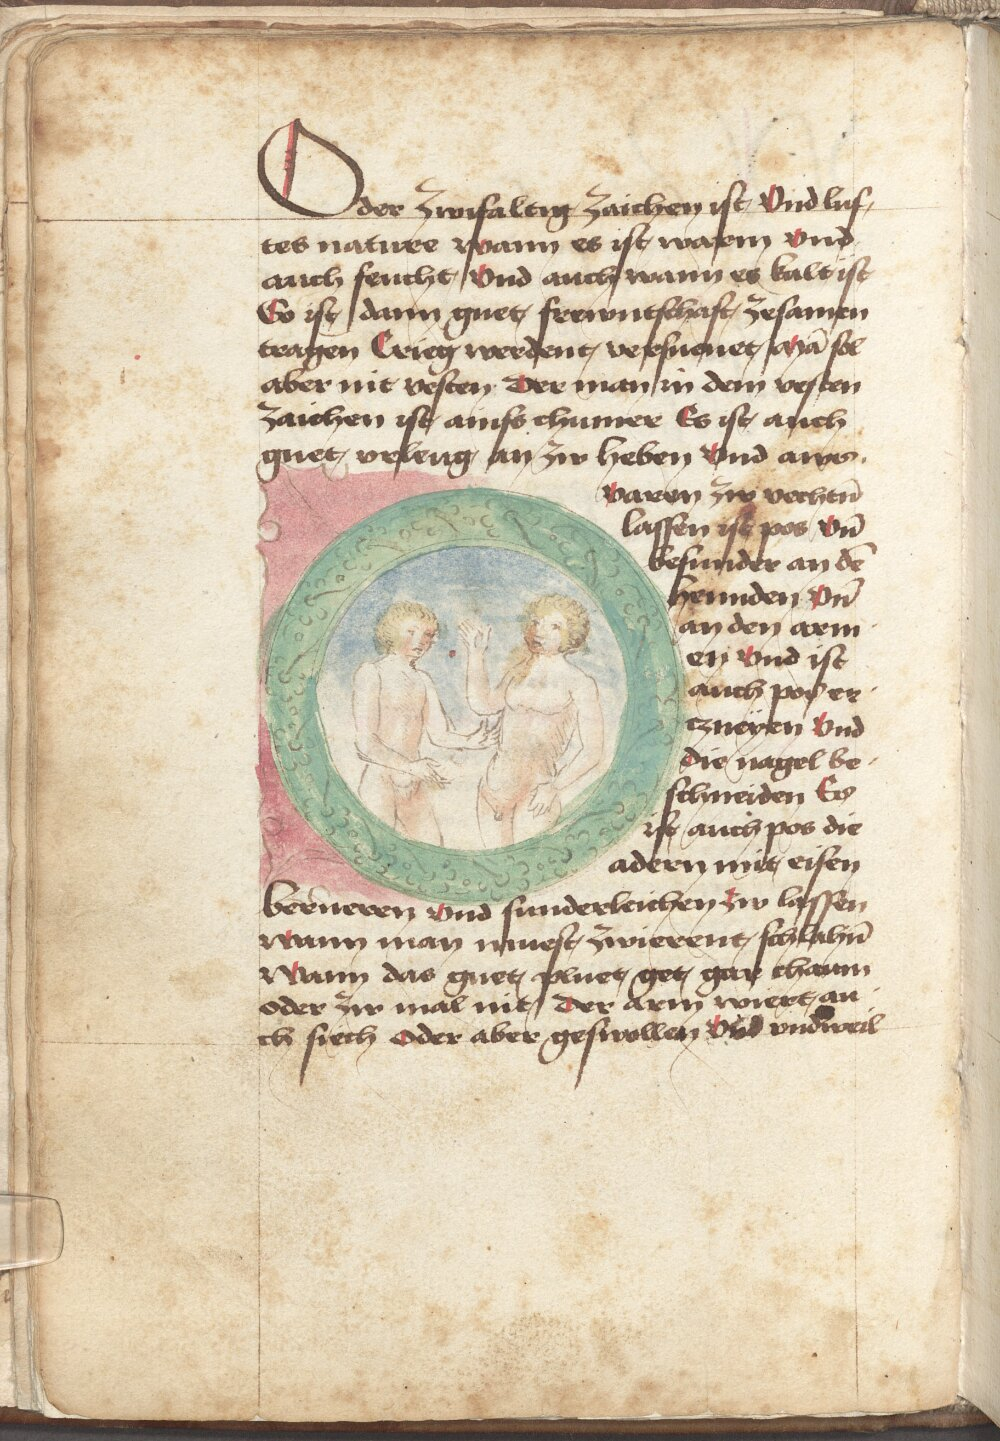 Oder Zwifaltig Zaichen ist Vnd luf,
tes naturе wann es ist warm vnd
auch feucht Vnd auch wann es kalt ist
So ist dann guet frewntschaft zesamen
tragen Crieg werdent versuenet Mā sol
aber nit vesten Der man in dem vesten
Zaichen ist ains chumer Es ist auch
guet vrleug an zw heben Vnd aws.
varen zw vechtn̄
lassen ist pos Vn̄
besunder an dē
hennden Vn̄
an den arm
en Vnd ist
auch pos er
czneyen Vnd
die nagel be
schneiden Es
ist auch pos die
adern mit eisen
berueren vnd sunderleichen zw lassen
wann man muest zwierent schlahn̄
Wann das guet pluet get gar chaum
oder zw mal nit Der arm wiert au
ch siech oder aber geswollen Vnd vndweil